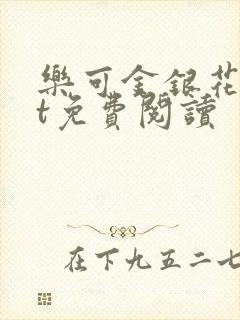 樂可金銀花
t免費閱讀
在下九五二七